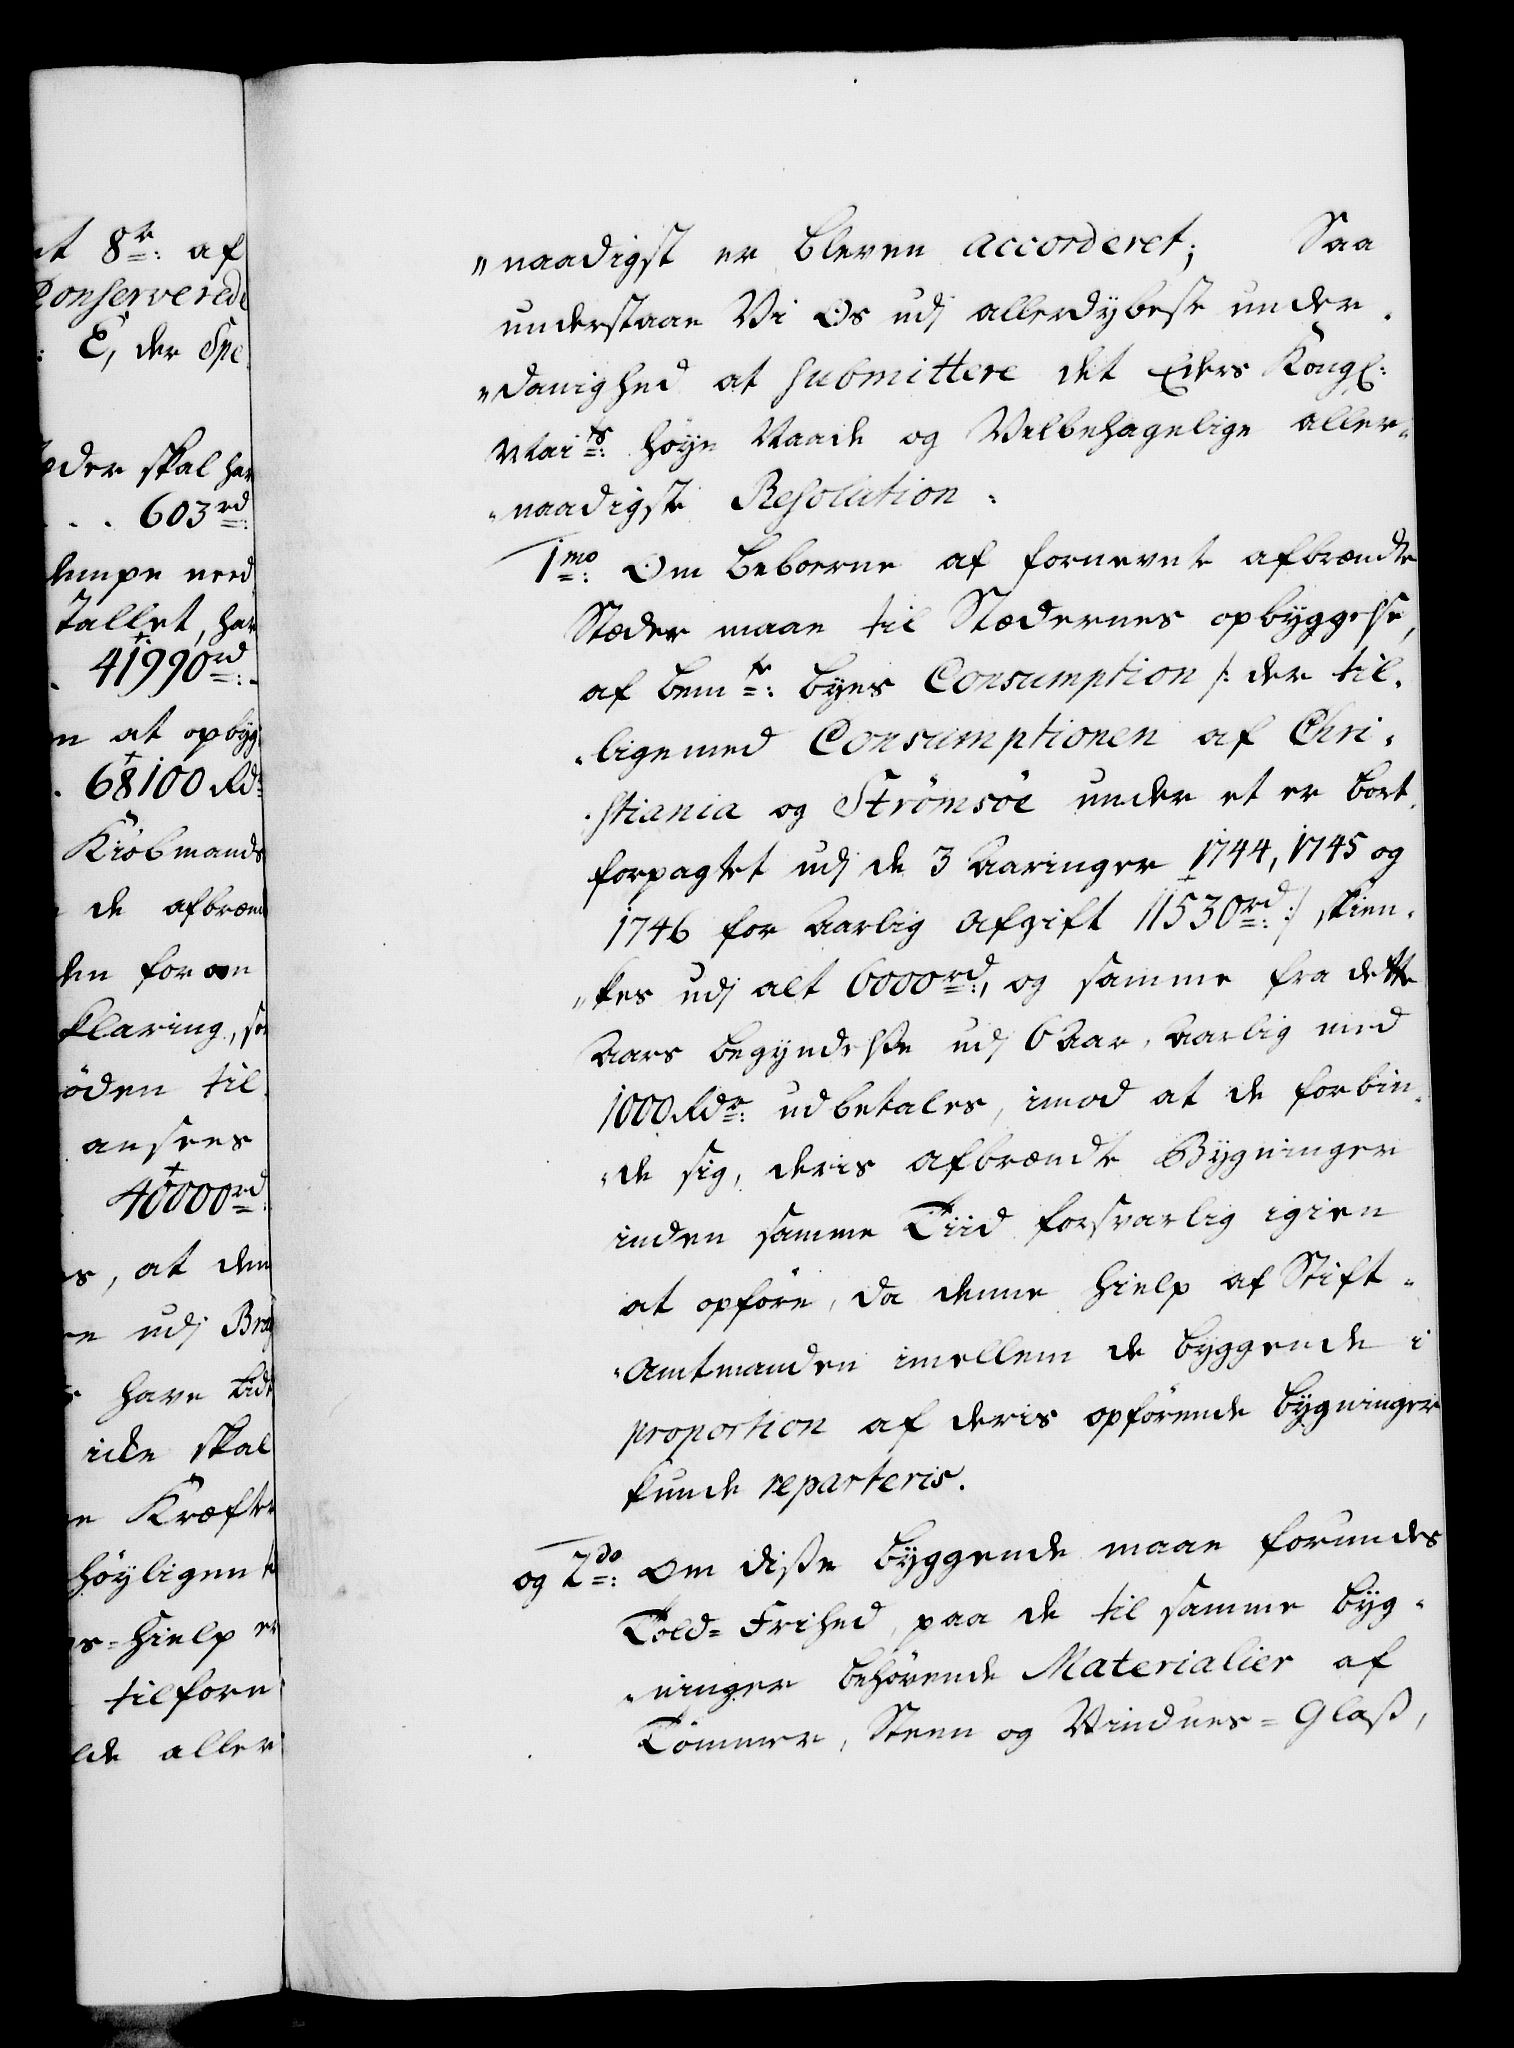 nt 8te: af
Conserverede
: E, der Spe
æder skal har
. . . 603rd:
lempe need
Tallet, har
. 41990rd:
n at opbyg
. 68100 Rdr
Kiöbmands
de afbrænd
den foraan
klaring, so
öden til
ansees
40000rd:
es, at den
re udj Brag
have tid
icke skal
ne Kræfter
höyligen t
s-Hielp er
tilforn
lde aller
"naadigst er bleven accorderet; Saa
understaae Vi Os udj allerdybeste under-
"danighed at submittere det Eders Kongl:
Maits: höye Naade og Velbehagelige aller-
"naadigste Resolution.
1mo: Om Beboerne af fornevnte afbrændte
Stæder maae til Stædernes opbyggelse,
af bemte: byes Consumption /: der til-
"ligemed Consumptionen af Chri-
"stiania og Strömsöe under et er bort-
forpagtet udj de 3 Aaringer 1744, 1745 og
1746 for Aarlig Afgift 11530rd: :/ skien-
"kes udj alt 6000rd:, og samme fra dette
Aars begyndelse udj 6 Aar, Aarlig med
1000 Rdr: udbetales, imod at de forbin-
"de sig, deris afbrændte Bygninger
inden samme Tiid forsvarlig igien
at opföre, da denne Hielp af Stift-
"Amtmanden imellem de byggende i
proportion af deris opförende bygninger
kunde reparteris.
og 2do: Om disse byggende maae forundes
Told-Frihed, paa de til samme byg-
"ninger behörende Materialier af
Tömmer, Steen og Vindues-Glass,